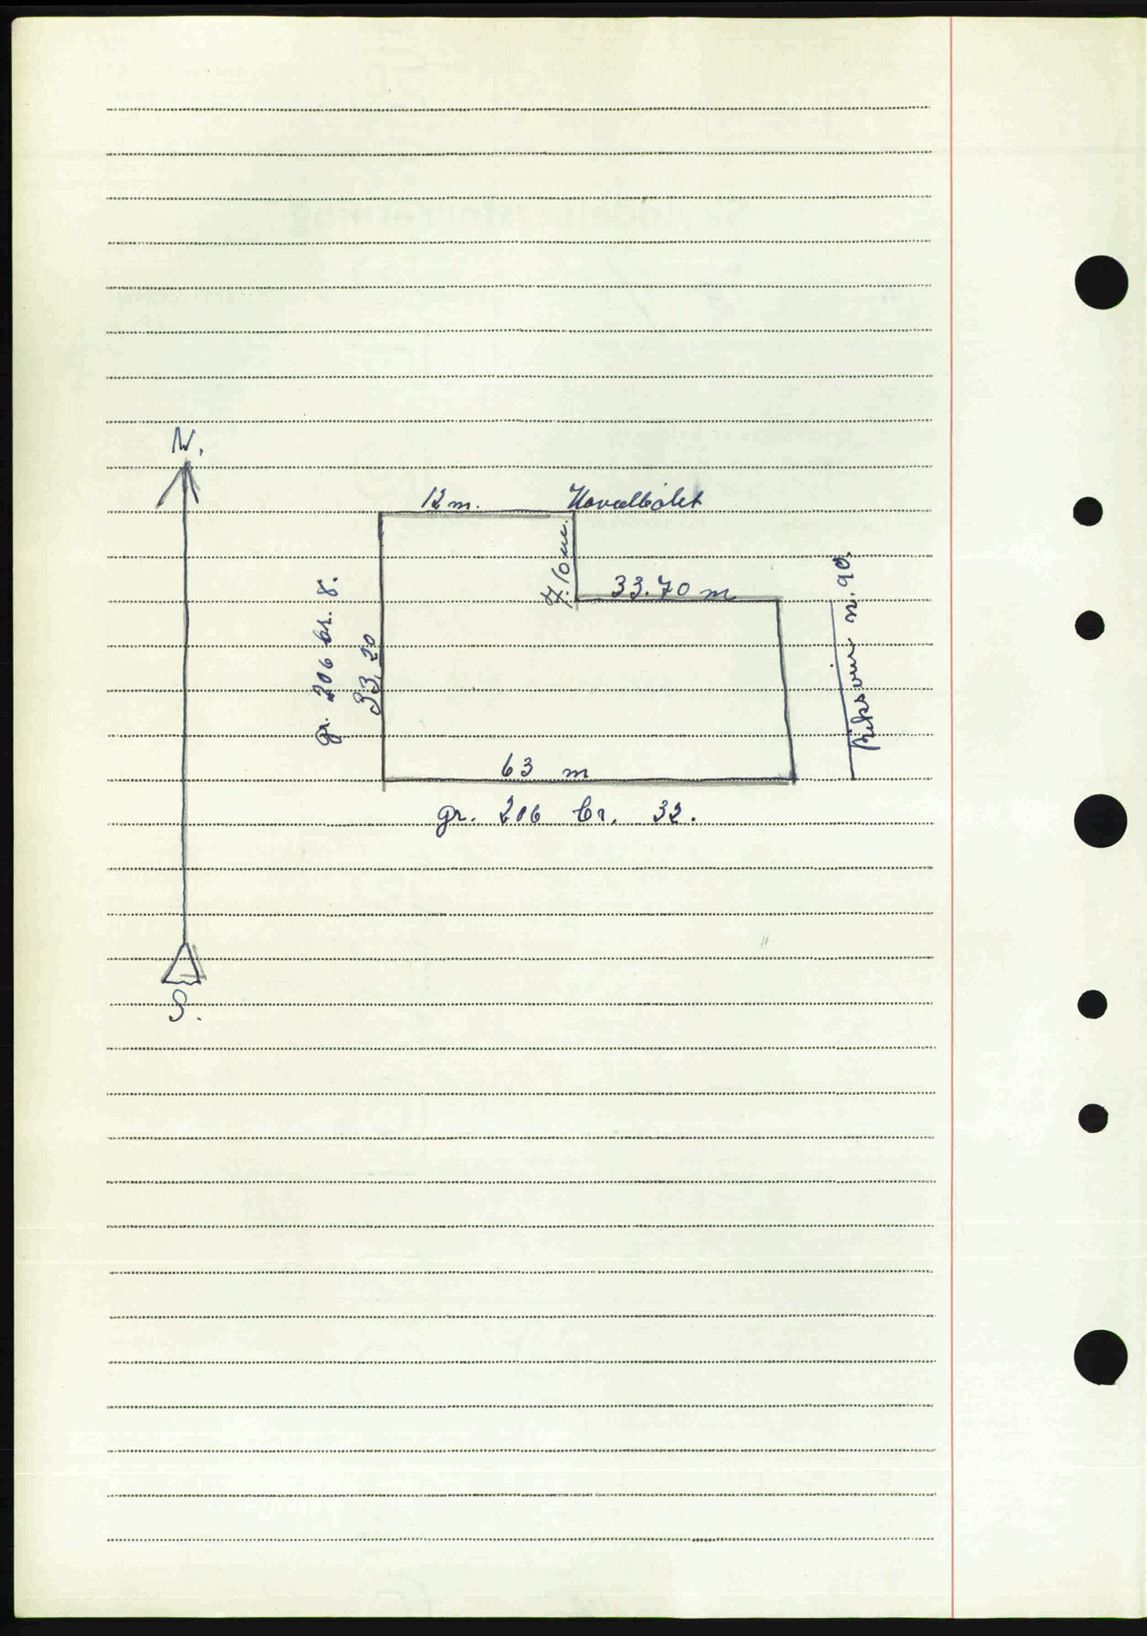 N.
12 m. Hovedbølet
7.10 m.
33.70 m
gr. 206 br. 8.
33,20
Riksvei n. 90.
63 m
gr. 206 br. 32.
S.